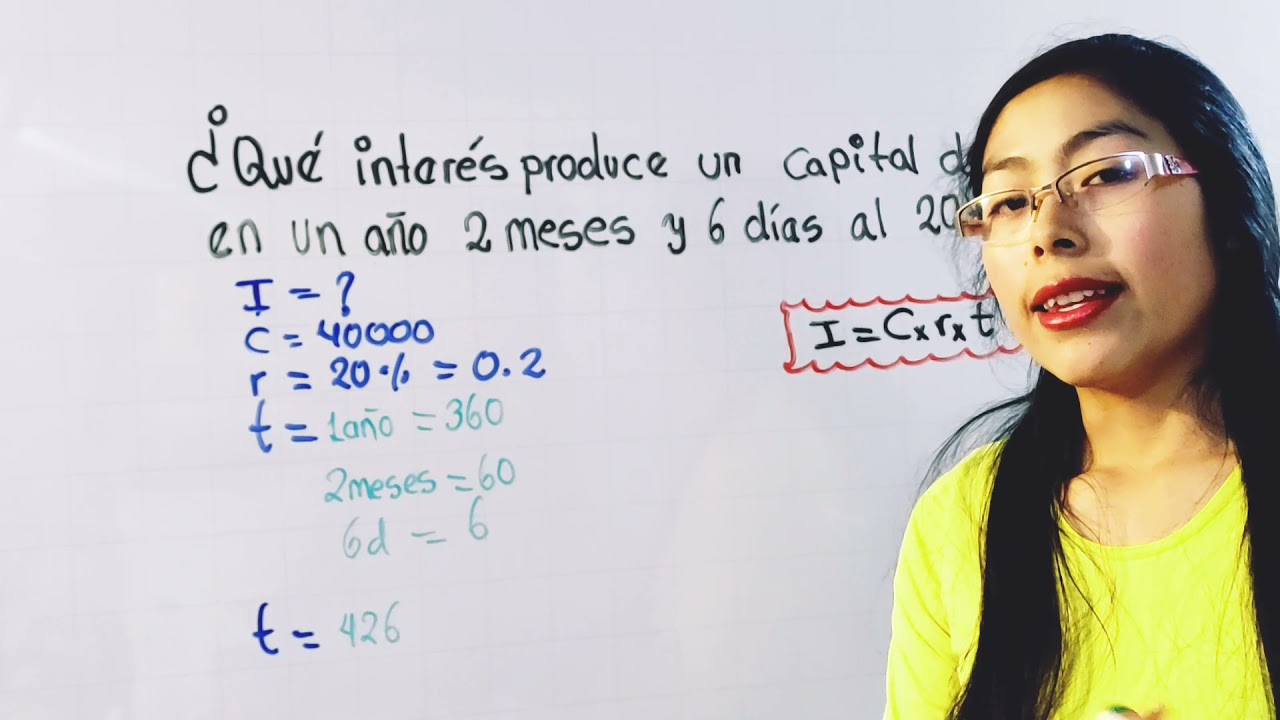 ¿Qué interés produce un capital d
en un año 2 meses y 6 días al 20
I = ?
C = 40000
r = 20% = 0.2
I = C x r x t
t = 1año = 360
2meses = 60
6d = 6
t = 426